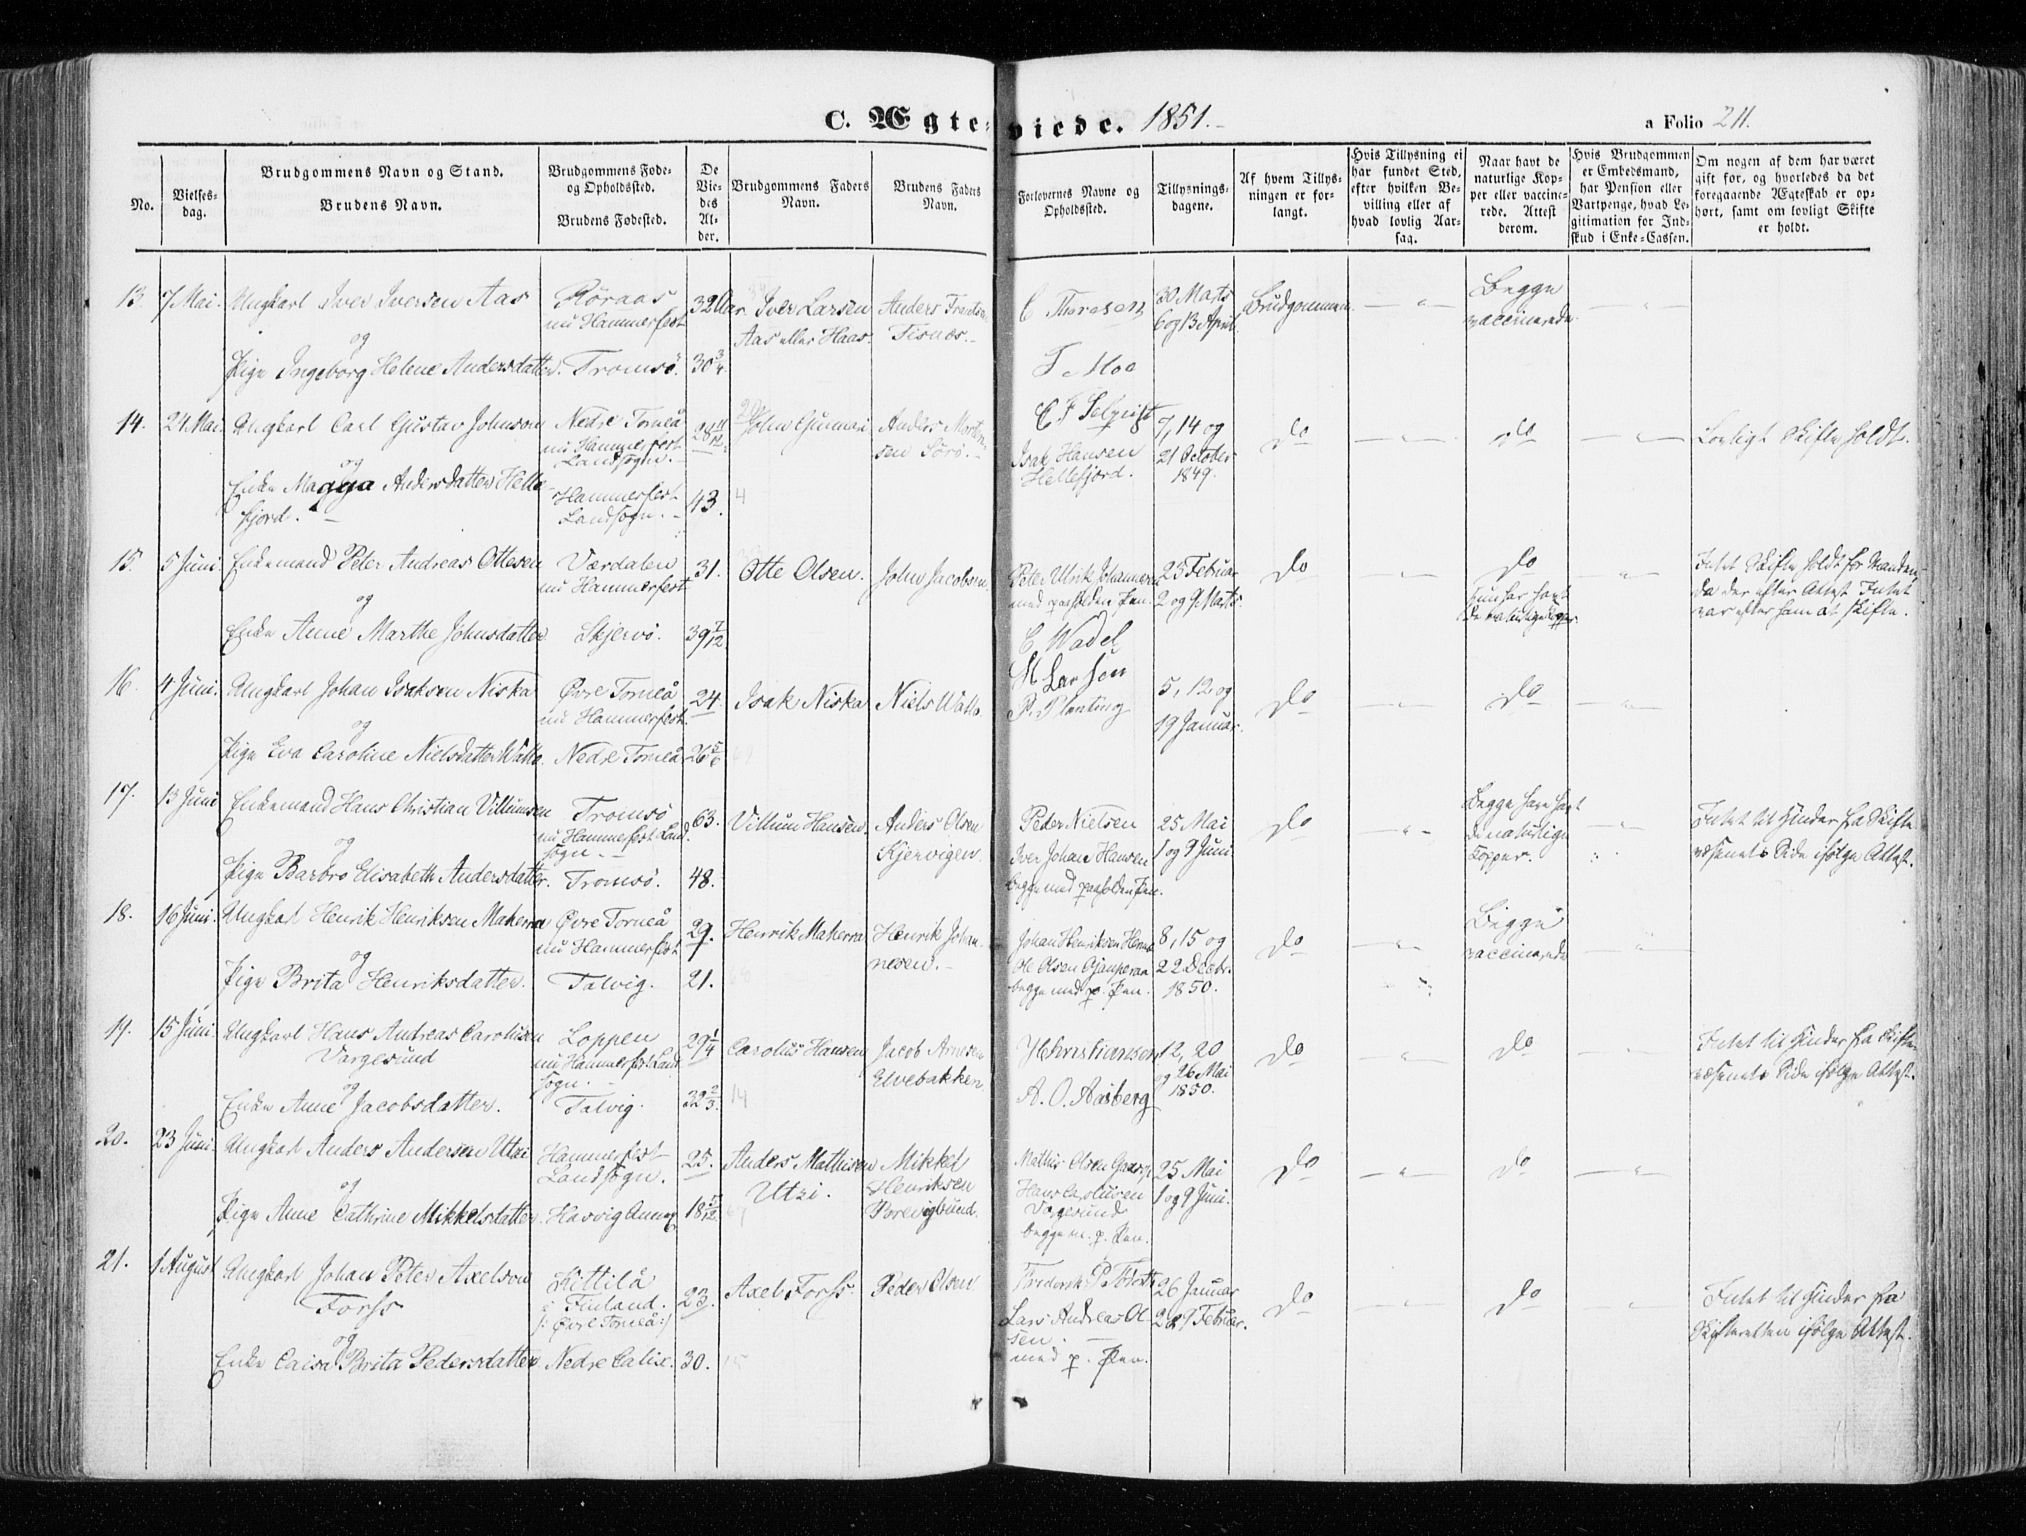 C. Ægte-viede. 1851.
a Folio 211.
No.
Vielses-
dag.
Brudgommens Navn og Stand.
Brudens Navn.
Brudgommens Føde-
og Opholdssted.
Brudens Fødested.
De
Vie-
des
Al-
der.
Brudgommens Faders
Navn.
Brudens Faders
Navn.
Forlovernes Navne og
Opholdssted.
Tillysnings-
dagene.
Af hvem Tillys-
ningen er for-
langt.
Hvis Tillysning ei
har fundet Sted,
efter hvilken Be-
villing eller af
hvad lovlig Aar-
sag.
Naar havt de
naturlige Kop-
per eller vaccine-
rede. Attest
derom.
Hvis Brudgommen
er Embedsmand,
har Pension eller
Vartpenge, hvad Le-
gitimation for Ind-
skud i Enke-Cassen.
Om nogen af dem har været
gift før, og hvorledes da det
foregaaende Ægteskab er op-
hørt, samt om lovligt Skifte
er holdt.
13. 7 Mai. Ungkarl Iver Iversen Aas
og
Pige Ingeborg Helene Andersdatter.
Röraas
nu Hammerfest
Tromsö.
32 Aar
30 3/4
Iver Larsen
Aas eller Haas.
Anders Frantsen
Tisnes.
C Thoresen
T Moe
30 Marts
6 og 13 April.
Brudgommen
Begge
vaccinerede.
14. 24 Mai. Ungkarl Carl Gustav Johnson
og
Enke Magga Andersdatter Helle-
fjord.
Nedre Torneå
nu Hammerfest
Landsogn.
Hammerfest
Landsogn.
28 11/12
43.
John Gunnari
Anders Morten-
sen Sörö.
Isak Hansen
Hellefjord.
7, 14 og
21 October
1849.
do
do
Lovligt Skifte holdt.
15. 5 Juni. Enkemand Peter Andreas Ottesen
og
Enke Anne Marthe Johnsdatter
Værdalen
nu Hammerfest
Skjervö.
31.
39 7/12
Otte Olsen.
John Jacobsen
Peter Ulrik Johannesen
med paaholden Pen.
C Wadel
23 Februar
2 og 9 Marts.
do
do
hun har havt
de naturlige Kopper.
Intet Skifte holdt for Manden,
da der efter Attest Intet
var efter ham at skifte.
16. 4 Juni. Ungkarl Johan Isaksen Niska
og
Pige Eva Caroline Nielsdatter Watto.
Øvre Torneå
nu Hammerfest.
Nedre Torneå
24
26 5/6
Isak Niska
Niels Watto
M Larsen
P. Plenting
5, 12 og
19 Januar.
do
do
17. 13 Juni Enkemand Hans Christian Villumsen
og
Pige Barbro Elisabeth Andersdatter.
Tromsö
nu Hammerfest Land-
sogn.
Tromsö.
63.
48.
Villum Hansen
Anders Olsen
Kjervigen.
Peder Nielsen
Iver Johan Hansen
begge med paaholden Pen.
25 Mai
1 og 9 Juni
do
Begge have havt
de naturlige
Kopper.
Intet til Hinder fra Skifte-
væsenets Side ifölge Attest.
18. 16 Juni. Ungkarl Henrik Henriksen Makerra
og
Pige Brita Henriksdatter.
Øvre Torneå
nu Hammerfest
Talvig.
29.
21.
Henrik Makerra
Henrik Johan-
nesen.
Johan Henriksen
Ole Olsen
begge med p. Pen.
8, 15 og
22 Decbr.
1850.
do
Begge
vaccinerede
19. 15 Juni Ungkarl Hans Andreas Carolusen
Vargesund
og
Enke Anne Jacobsdatter.
Loppen
nu Hammerfest Land-
sogn.
Talvig.
29 1/4
32 2/3
Carolus Hansen
Jacob Arnesen
Elvebakken
Christiansen
A. O. Aasberg
12, 20
og 26 Mai
1850.
do
do
Intet til Hinder fra Skifte-
væsenets Side ifölge Attest.
20. 23 Juni. Ungkarl Anders Andersen Utsi
og
Pige Anne Cathrine Mikkelsdatter.
Hammerfest
Landsogn.
Hasvig Annex
25.
18 5/12
Anders Mathisen
Utzi.
Mikkel
Henriksen
Mathis Olsen
Hans Carolusen
Vargesund
begge m. p. Pen.
25 Mai
1 og 9 Juni.
do
do
21. 1 August Ungkarl Johan Peter Axelson
Forss
og
Enke Caisa Brita Pedersdatter
Kittilå
i Finland.
/: Øvre Torneå :/
Nedre Calix.
23.
30.
Axel Forss.
Peder Olsen
Lars Andreas Ol-
sen.
med p. Pen.
26 Januar
2 & 9 Februar.
do
do
Intet til Hinder fra
Skifteretten ifölge Attest.